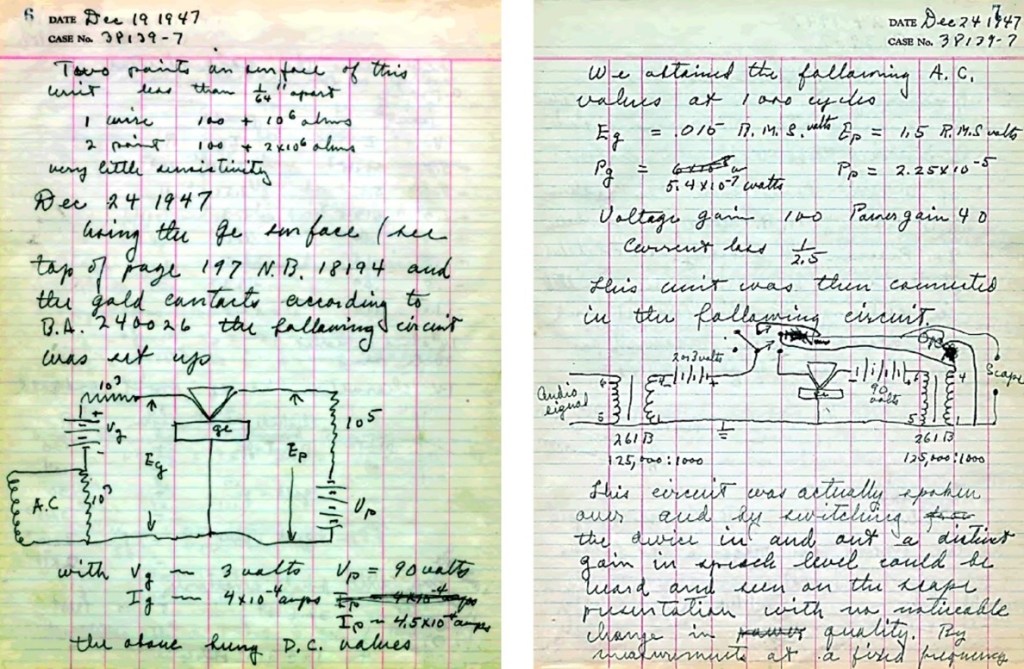 6
DATE Dec 19 1947
CASE No. 38139-7
Two points on surface of this
unit less than 1/64" apart
1 wire 100 + 10⁶ ohms
2 point 100 + 2x10⁶ ohms
very little sensitivity
Dec 24 1947
Using the Ge surface (see
top of page 197 N.B. 18194 and
the gold contacts according to
B.A. 240026 the following circuit
was set up
10³
Vg
ge
10⁵
Eg
Ep
A.C
10³
Vp
with Vg ~ 3 volts Vp = 90 volts
Ig ~ 4x10⁻⁴ amps Ip ~ 4x10⁻⁴ amps
Ip ~ 4.5x10⁻⁴ amps
the above being D.C. values
7
DATE Dec 24 1947
CASE No. 38139-7
We obtained the following A.C.
values at 1000 cycles
Eg = .015 R.M.S. volts Ep = 1.5 R.M.S volts
Pg = 5.4x10⁻⁷ watts Pp = 2.25x10⁻⁵
Voltage gain 100 Power gain 40
Current loss 1/2.5
This unit was then connected
in the following circuit.
2 or 3 volts
Audio signal
90 volts
ge
Scope
4
5
4
5
1
261B
125,000:1000
261B
125,000:1000
This circuit was actually spoken
over and by switching
the device in and out a distinct
gain in speech level could be
heard and seen on the scope
presentation with no noticeable
change in power quality. By
measurements at a fixed frequency